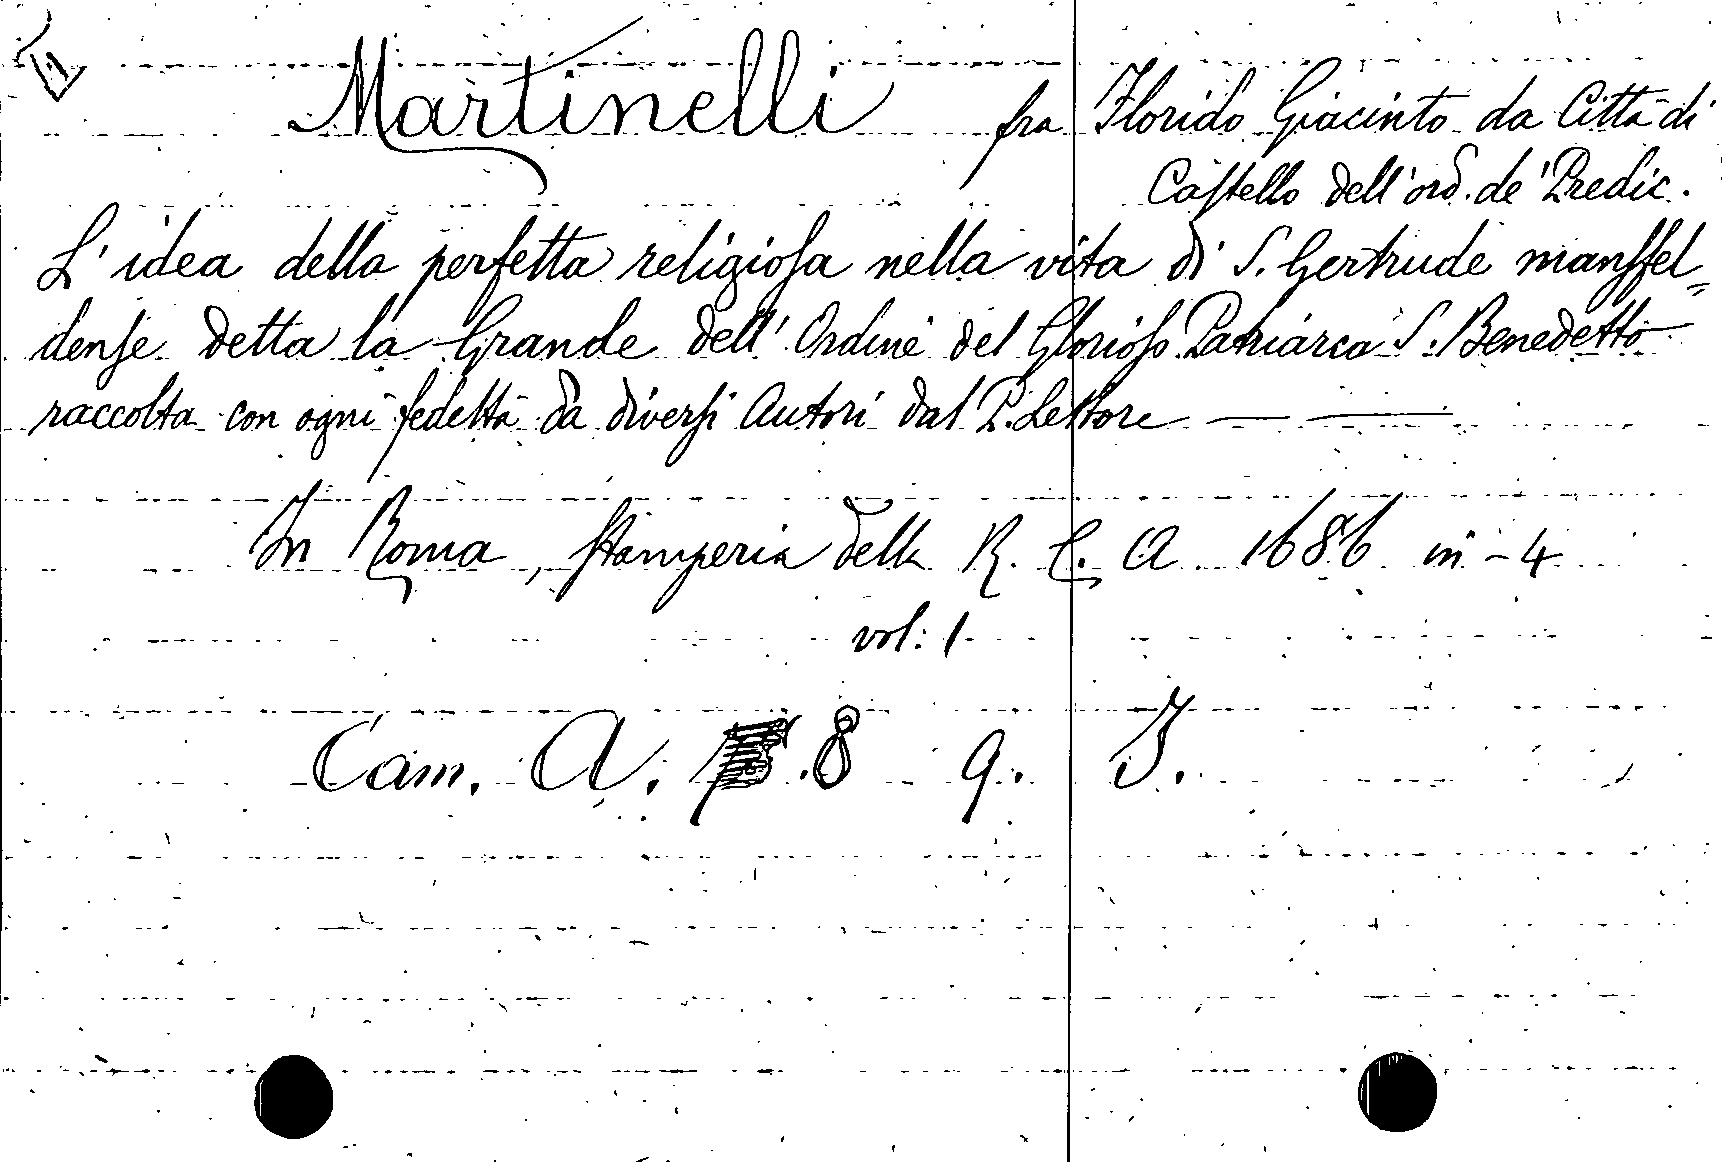 Martinelli fra Florido Giacinto da Città di
Castello dell'ord. de' Predic.
L'idea della perfetta religiosa nella vita di S. Gertrude mansfel=
dense detta la Grande dell' Ordine del Glorioso Patriarca S. Benedetto
raccolta con ogni fedeltà da diversi Autori dal P. Lettore — —
In Roma, stamperia della R. C. A 1686 in-4
vol: 1
Cam. A. .8 9. I.